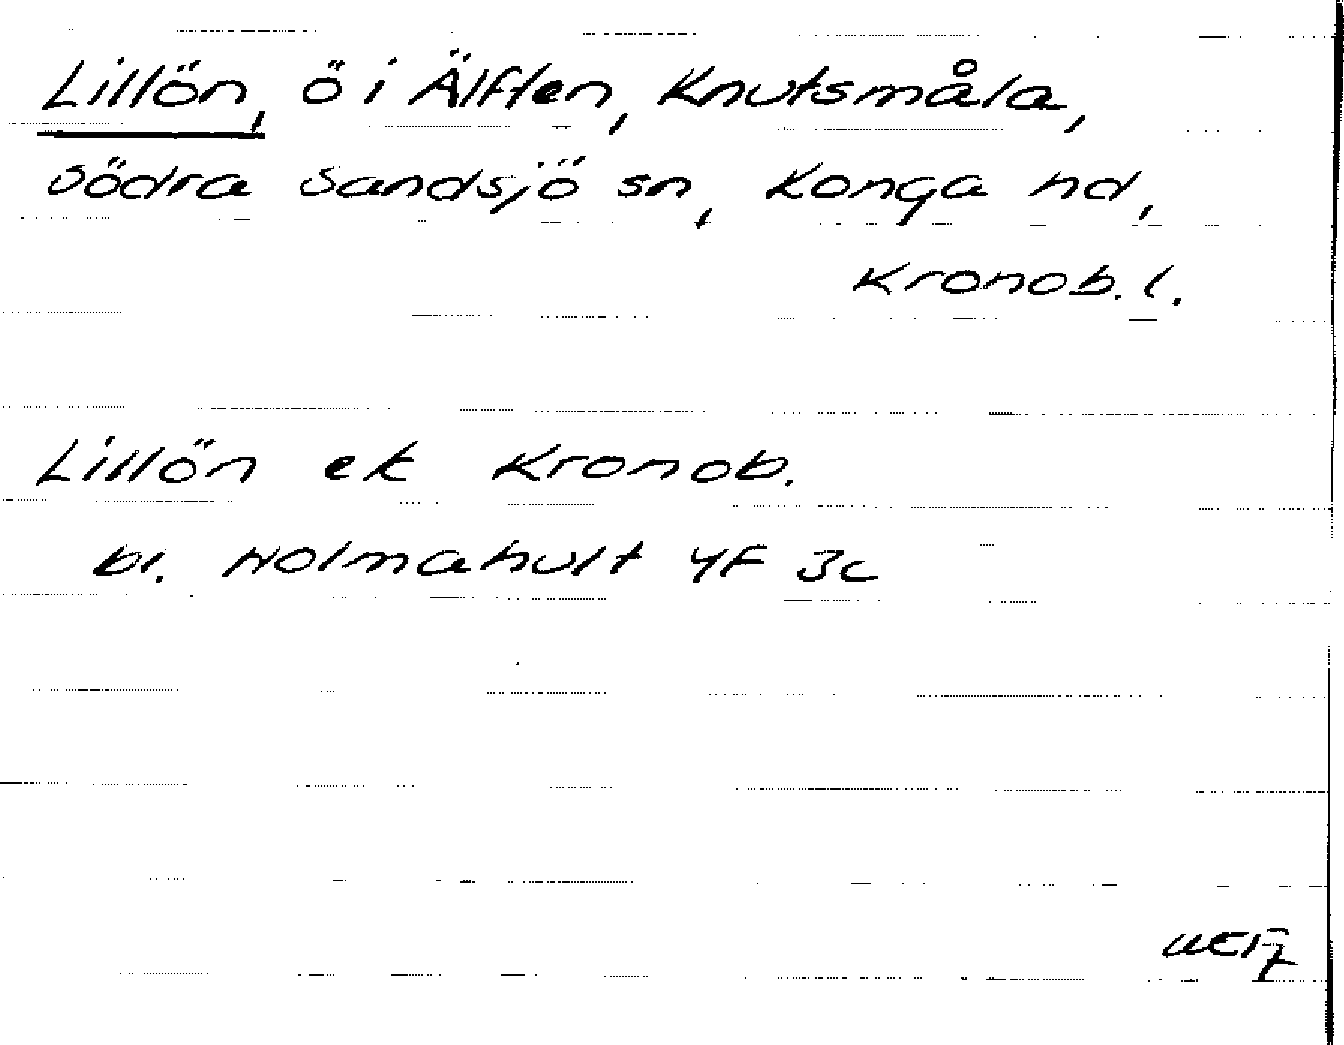 Lillön, ö i Älften, Knutsmåla,
Södra Sandsjö sn, Konga hd,
Kronob. l.
Lillön ek Kronob.
bl. Holmahult 4F 3c